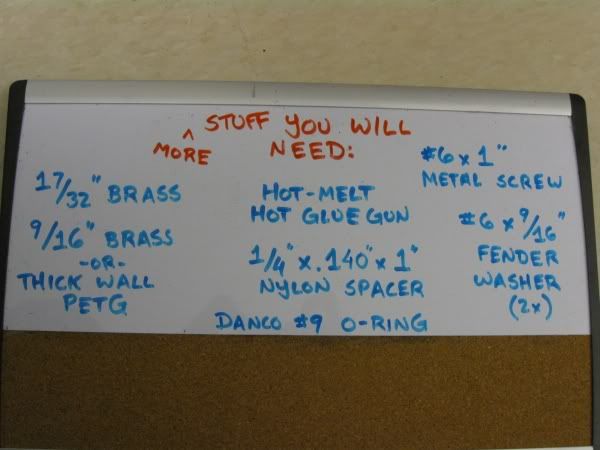 STUFF YOU WILL
^
MORE NEED:
17/32" BRASS
9/16" BRASS
-OR-
THICK WALL
PETG
HOT-MELT
HOT GLUE GUN
1/4" x .140" x 1"
NYLON SPACER
DANCO #9 O-RING
#6 x 1"
METAL SCREW
#6 x 9/16"
FENDER
WASHER
(2x)